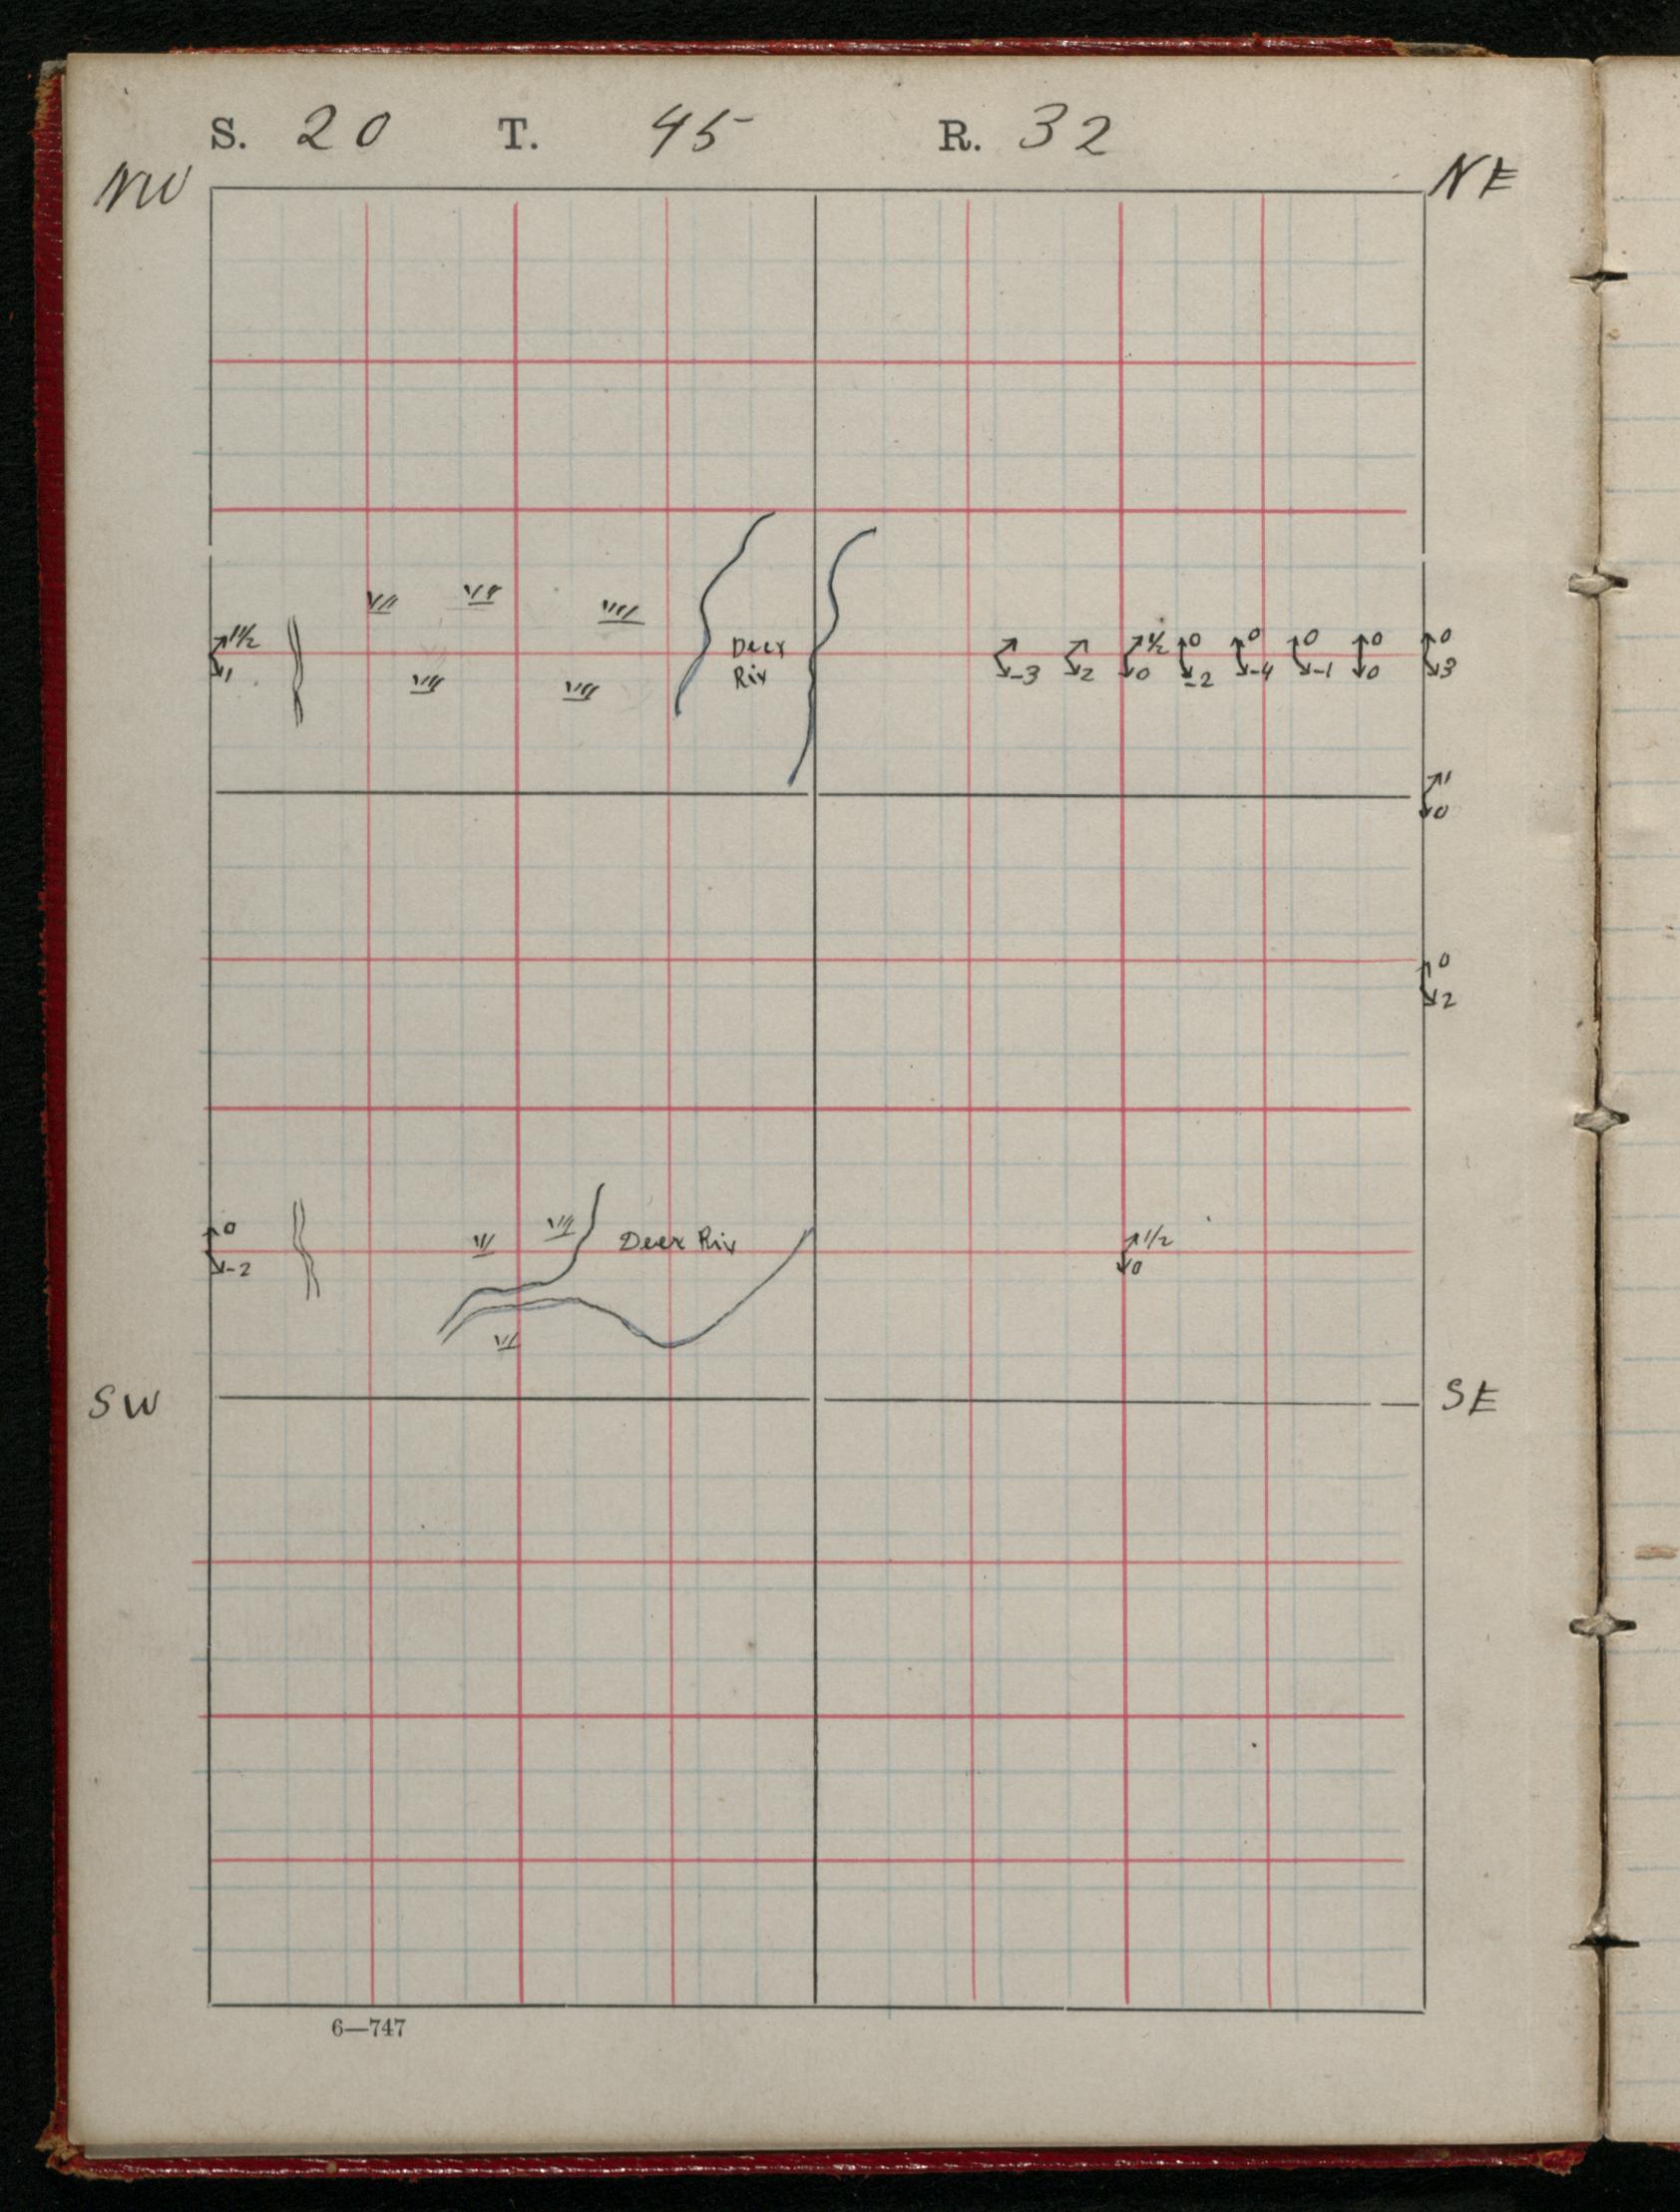 S. 20 T. 45 R. 32
NW NE
1 1/2
1
Deer
Riv
-3 2 1/2 0 0 -2 0 -4 0 -1 0 0 0 3
1
0
0
2
0
-2
Deer Riv
1/2
0
SW SE
6—747